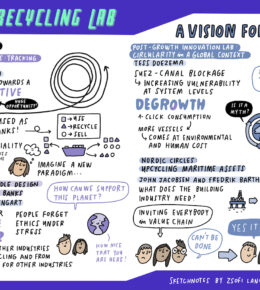 RECYCLING LAB
A VISION FO
TRACKING
TOWARDS A
OPPORTUNITY!
USED AS
BANKS!
USE
RECYCLE
SELL
IMAGINE A NEW
PARADIGM...
HOW CAN WE SUPPORT
THIS PLANET?
DLE DESIGN
BANKS
NGART
PEOPLE FORGET
ETHICS UNDER
STRESS
THER INDUSTRIES
CLING AND FROM
FOR OTHER INDUSTRIES
HOW NICE
THAT YOU
ARE HERE!
POST-GROWTH INNOVATION LAB
CIRCULARITY IN A GLOBAL CONTEXT
TESS DOEZEMA
SUEZ-CANAL BLOCKAGE
INCREASING VULNERABILITY
AT SYSTEM LEVELS
DEGROWTH
IS IT A
MYTH?
CLICK CONSUMPTION
MORE VESSELS
COMES AT ENVIRONMENTAL
AND HUMAN COST
NORDIC CIRCLES:
UPCYCLING MARITIME ASSETS
JOHN JACOBSEN AND FREDRIK BARTH
WHAT DOES THE BUILDING
INDUSTRY NEED?
INVITING EVERYBODY
IN VALUE CHAIN
CAN'T BE
DONE
YES IT
SKETCHNOTES BY ZSOFI LAN